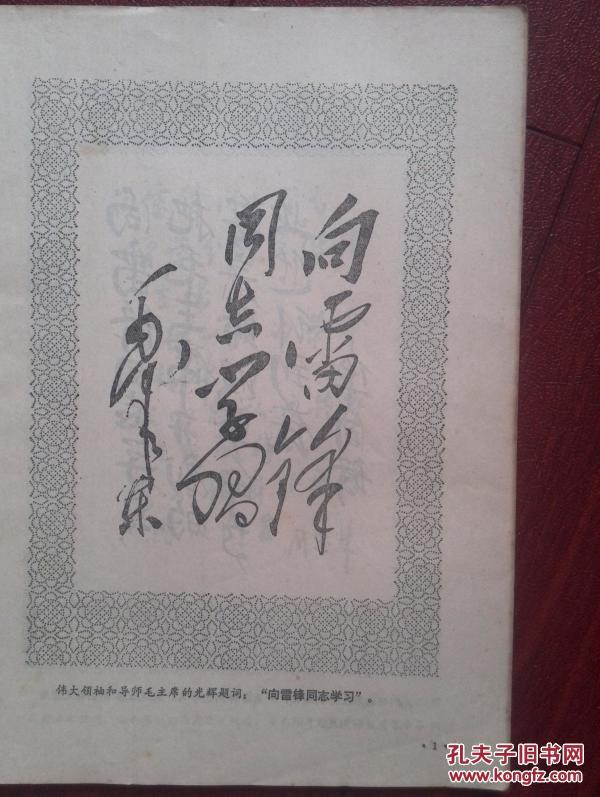 向雷锋
同志学习
毛泽东
伟大领袖和导师毛主席的光辉题词：“向雷锋同志学习”。
·1·
孔夫子旧书网
www.kongfz.com